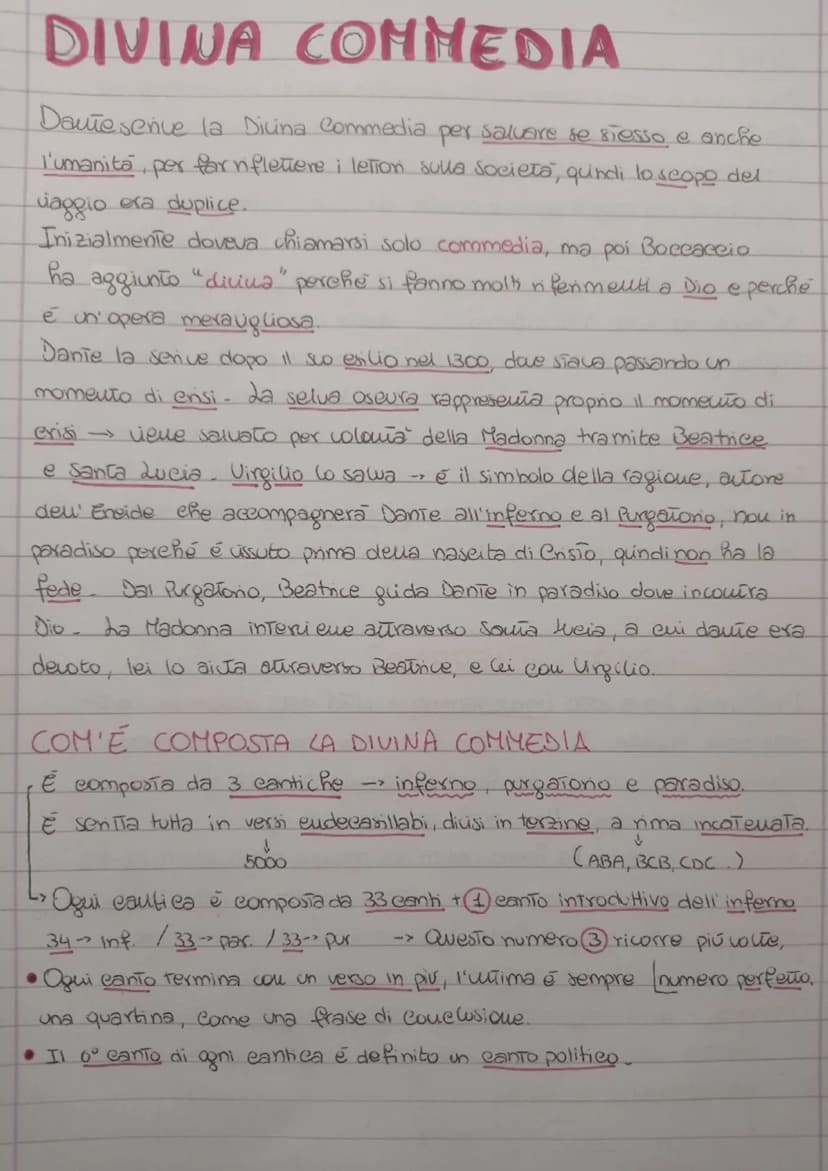 DIVINA COMMEDIA
Dante scrive la Divina Commedia per salvare se stesso e anche
l'umanità, per far riflettere i lettori sulla società, quindi lo scopo del
viaggio era duplice.
Inizialmente doveva chiamarsi solo commedia, ma poi Boccaccio
ha aggiunto "divina" perché si fanno molti riferimenti a Dio e perché
è un'opera meravigliosa.
Dante la scrive dopo il suo esilio nel 1300, dove stava passando un
momento di crisi. La selva oscura rappresenta proprio il momento di
crisi → viene salvato per volontà della Madonna tramite Beatrice
e Santa Lucia. Virgilio lo salva → è il simbolo della ragione, autore
dell'Eneide che accompagnerà Dante all'inferno e al Purgatorio, non in
paradiso perché è vissuto prima della nascita di Cristo, quindi non ha la
fede. Dal Purgatorio, Beatrice guida Dante in paradiso dove incontra
Dio. La Madonna interviene attraverso Santa Lucia, a cui dante era
devoto, lei lo aiuta attraverso Beatrice, e lei con Virgilio.
COM'È COMPOSTA LA DIVINA COMMEDIA
È composta da 3 cantiche → inferno, purgatorio e paradiso.
È scritta tutta in versi endecasillabi, divisi in terzine, a rima incatenata.
↓ 5000 ↓ (ABA, BCB, CDC..)
↳ Ogni cantica è composta da 33 canti + 1 canto introduttivo dell'inferno
34 → inf. / 33 → par. / 33 → pur → Questo numero 3 ricorre più volte,
• Ogni canto termina con un verso in più, l'ultima è sempre | numero perfetto.
una quartina, come una frase di conclusione.
• Il 6° canto di ogni cantica è definito un canto politico.